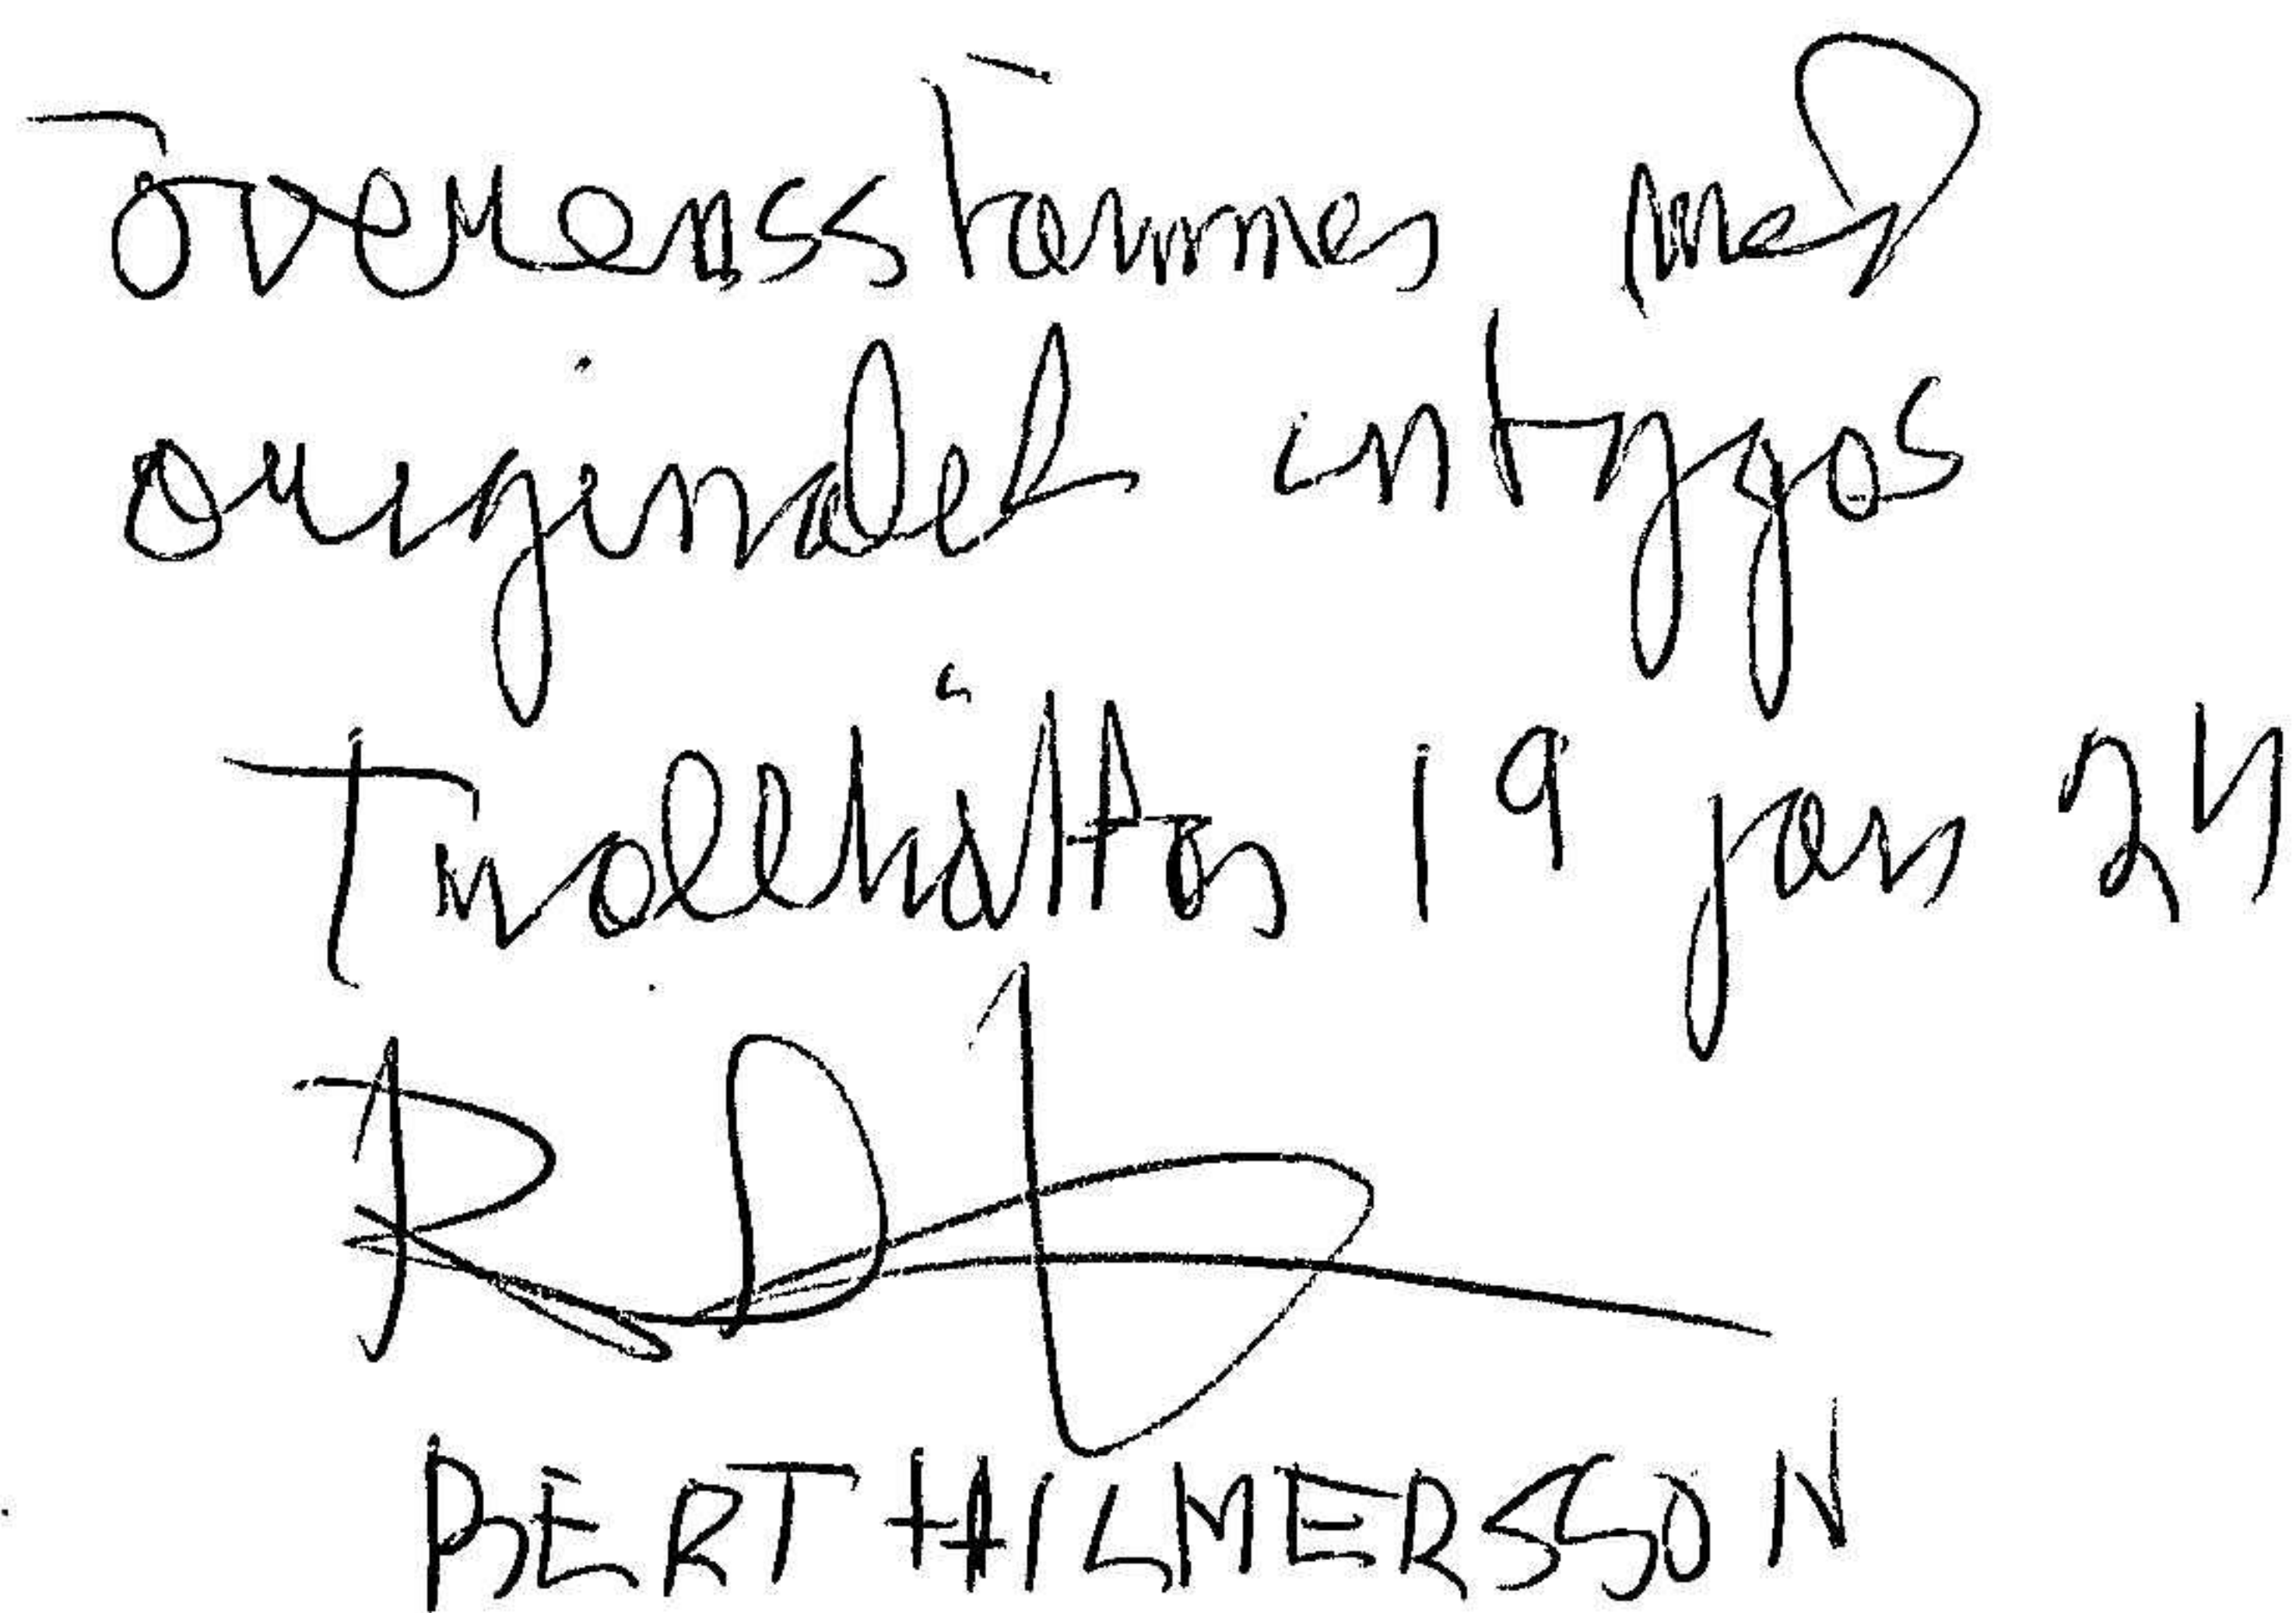 överensstämmer med
originalet intygas
Trollhättan 19 jan 24
BERT HILMERSSON